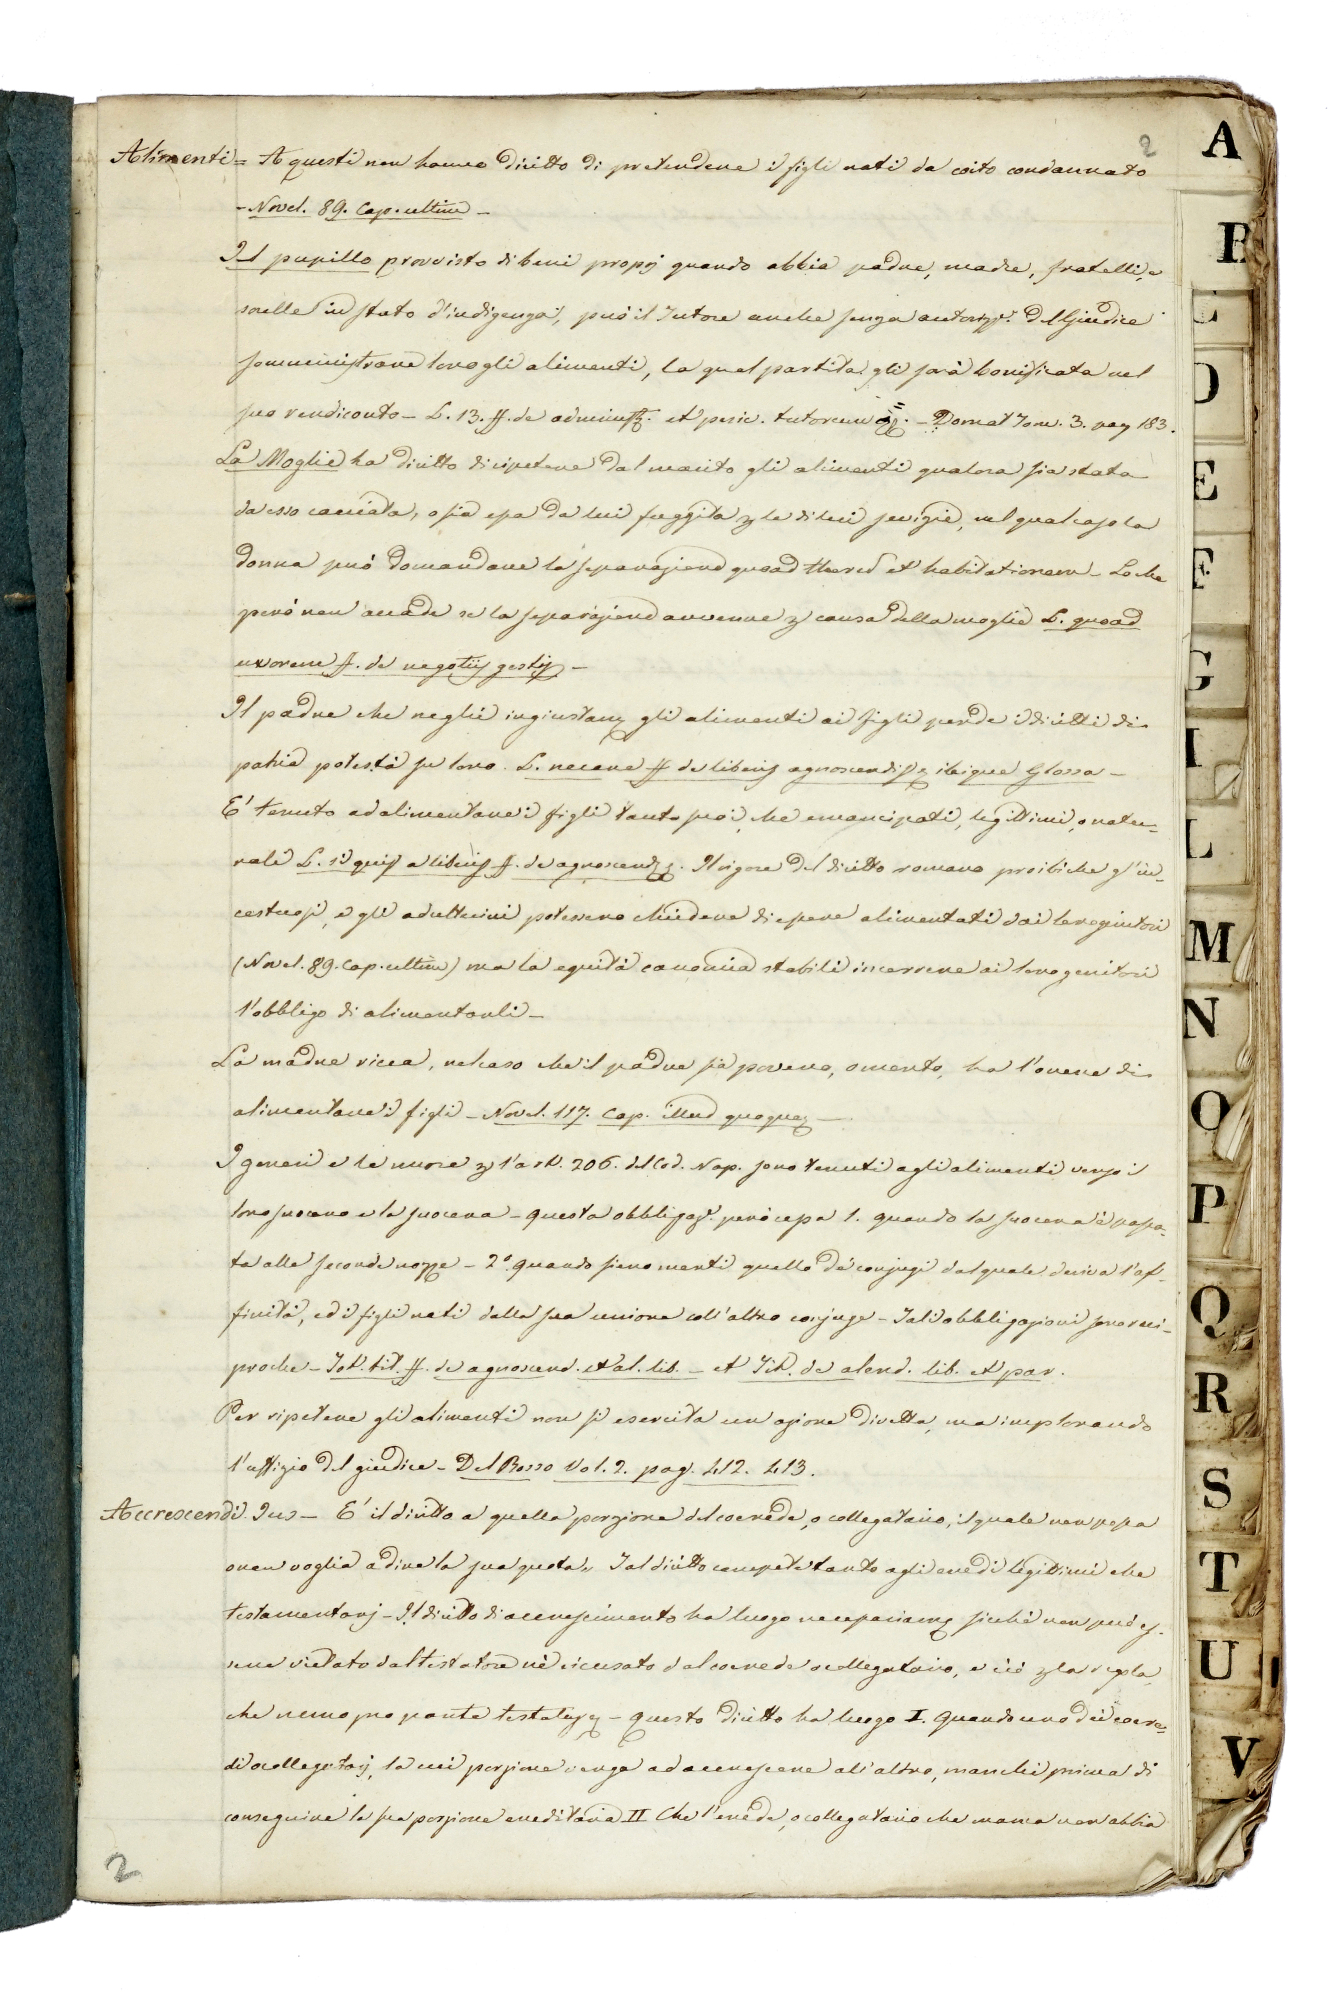 2
Alimenti = A questi non hanno diritto di pretendere i figli nati da coito condannato
- Novel. 89. Cap. ultim -
Il pupillo provvisto di beni propj quando abbia padre, madre, fratelli, e
sorelle in stato d'indigenza, può il Tutore anche senza autorizz. del Giudice
somministrare loro gli alimenti, la qual partita gli sarà bonificata nel
suo rendiconto - L. 13. ff. de administ. et peric. tutorum - Domat Tom. 3. pag 183.
La Moglie ha diritto di ripetere dal marito gli alimenti qualora sia stata
da esso cacciata, o sia essa da lui fuggita p le di lui sevizie, nel qual caso la
donna può domandare la separazione quoad thorum et habitationem - Lo che
però non accade se la separazione avvenne p causa della moglie L. quoad
uxorem ff. de negotiis gestis -
Il padre che neghi ingiustam gli alimenti ai figli perde i diritti di
patria potestà su loro. L. necare ff de liberis agnoscendis ibique Glossa -
E' tenuto ad alimentare i figli tanto suoi, che emancipati, legittimi, o natu-
rali L. si quis a liberis ff. de agnoscend. Il rigore del diritto romano proibì che gl'in-
cestuosi, e gli adulterini potessero chiedere di essere alimentati dai loro genitori
(Novel. 89. Cap. ultim) ma la equità canonica stabilì incorrere ai loro genitori
l'obbligo di alimentarli -
La madre ricca, nel caso che il padre sia povero, o morto, ha l'onere di
alimentare i figli - Novel. 117. Cap. illud quoque -
I generi e le nuore p l'art. 206. del Cod. Nap. sono tenuti agli alimenti verso il
loro suocero e la suocera - Questa obbligaz. però cessa 1. quando la suocera è passa-
ta alle seconde nozze - 2.° Quando sieno morti quello de' conjugi dal quale deriva l'af-
finità, ed i figli nati dalla sua unione coll'altro conjuge - Tali obbligazioni sono reci-
proche - Tot. tit. ff. de agnoscend. et al. lib. - et Tit. de alend. lib. et par.
Per ripetere gli alimenti non si esercita un azione diretta, ma implorando
l'uffizio del giudice - Del Rosso Vol. 2. pag. 412. 413.
Accrescendi Jus - E' il diritto a quella porzione del coerede, o collegatario, il quale non possa
o non voglia adire la sua quota. Tal diritto compete tanto agli eredi legittimi che
testamentarj - Il diritto di accrescimento ha luogo necessariam sicchè non può es-
sere vietato dal testatore nè ricusato dal coerede o collegatario, e ciò p la regola,
che nemo pro parte testatus - Questo diritto ha luogo I. Quando uno dei coere-
di o collegatarj, la cui porzione venga ad accrescere all'altro, manchi prima di
conseguire la sua porzione ereditaria II Che l'erede, o collegatario che manca non abbia
2
A
B
D
E
F
G
I
L
M
N
O
P
Q
R
S
T
U
V